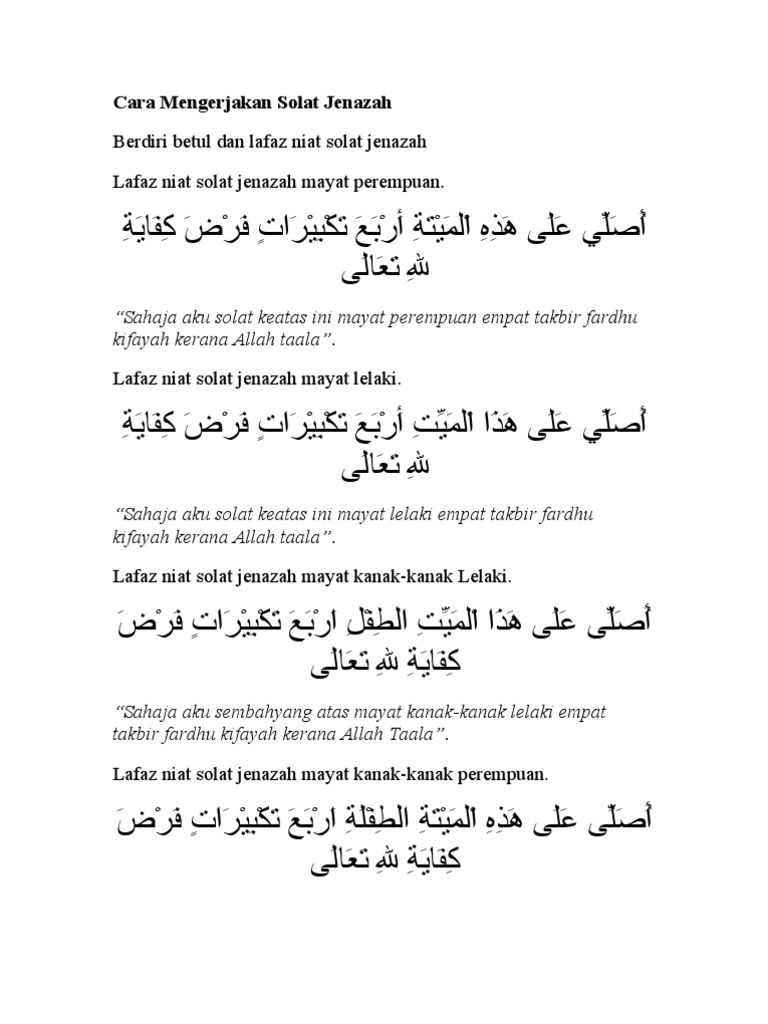 Cara Mengerjakan Solat Jenazah
Berdiri betul dan lafaz niat solat jenazah
Lafaz niat solat jenazah mayat perempuan.
أُصَلِّي عَلَى هَذِهِ الْمَيْتَةِ أَرْبَعَ تَكْبِيْرَاتٍ فَرْضَ كِفَايَةِ
للهِ تَعَالَى
“Sahaja aku solat keatas ini mayat perempuan empat takbir fardhu
kifayah kerana Allah taala”.
Lafaz niat solat jenazah mayat lelaki.
أُصَلِّي عَلَى هَذَا الْمَيِّتِ أَرْبَعَ تَكْبِيْرَاتٍ فَرْضَ كِفَايَةِ
للهِ تَعَالَى
“Sahaja aku solat keatas ini mayat lelaki empat takbir fardhu
kifayah kerana Allah taala”.
Lafaz niat solat jenazah mayat kanak-kanak Lelaki.
أُصَلِّى عَلَى هَذَا الْمَيِّتِ الطِفْلِ اَرْبَعَ تَكْبِيْرَاتٍ فَرْضَ
كِفَايَةِ للهِ تَعَالَى
“Sahaja aku sembahyang atas mayat kanak-kanak lelaki empat
takbir fardhu kifayah kerana Allah Taala”.
Lafaz niat solat jenazah mayat kanak-kanak perempuan.
أُصَلِّى عَلَى هَذِهِ الْمَيْتَةِ الطِفْلَةِ اَرْبَعَ تَكْبِيْرَاتٍ فَرْضَ
كِفَايَةِ للهِ تَعَالَى